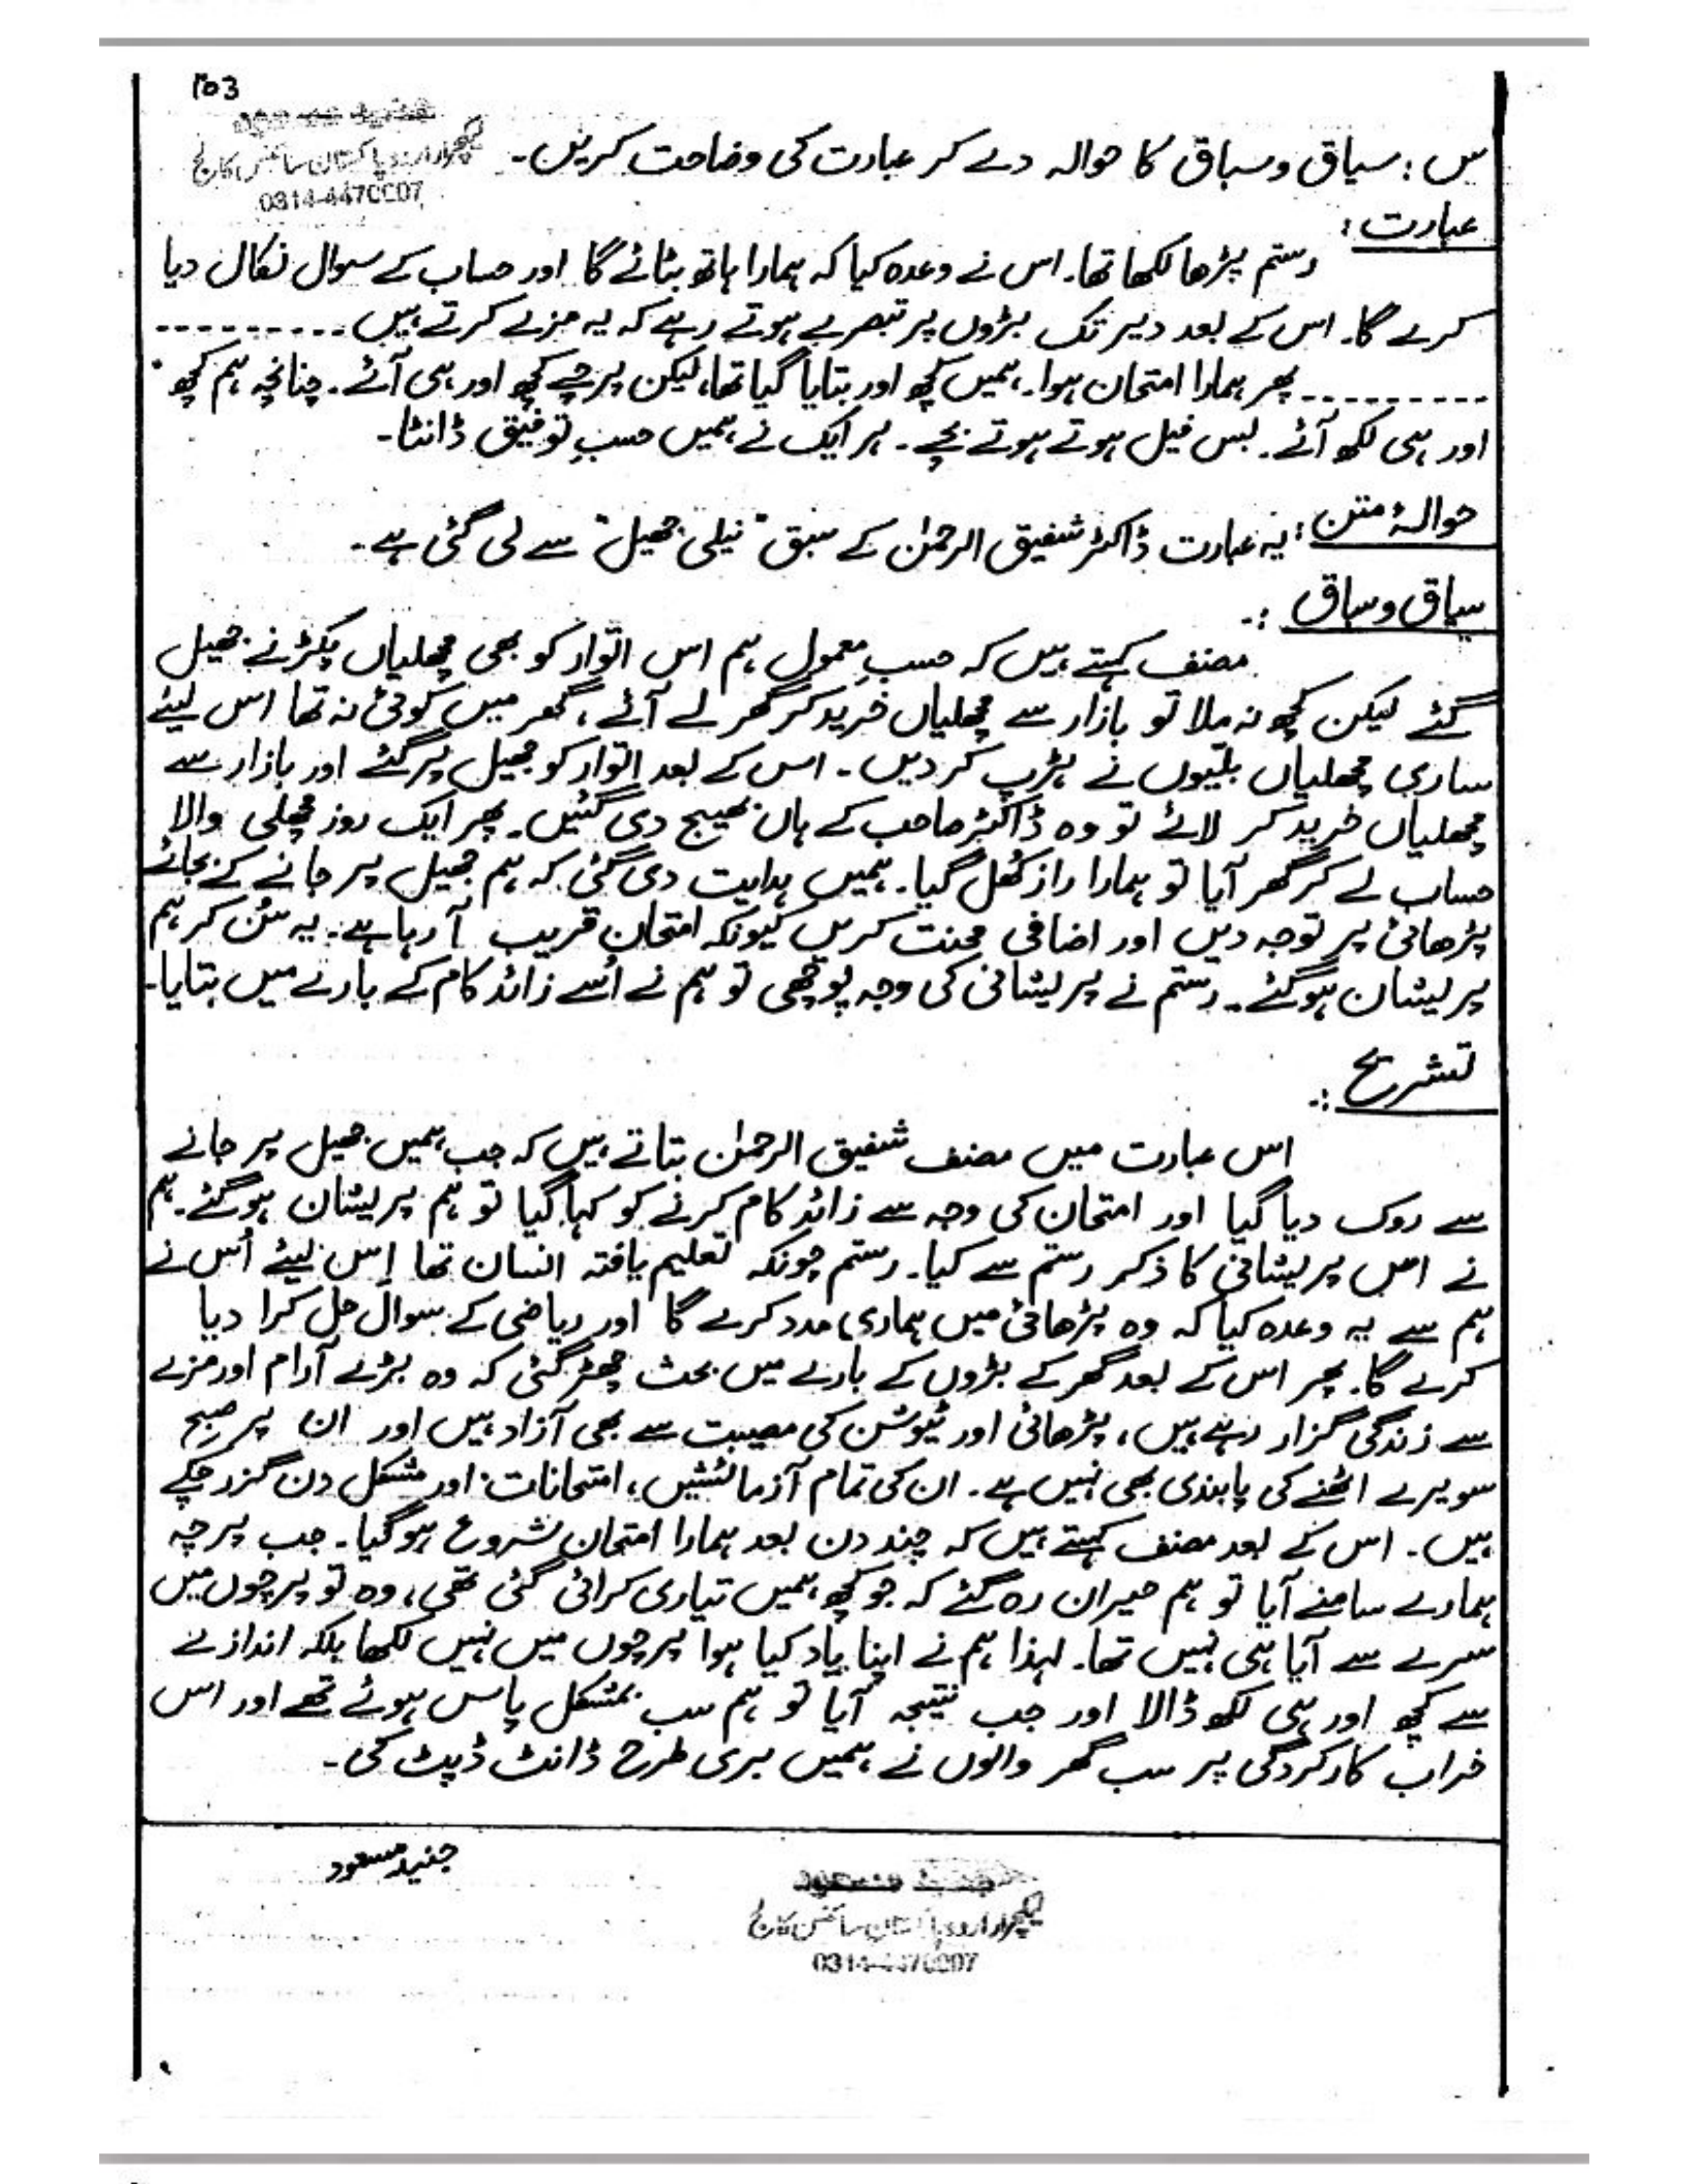 103
لیکچرار اردو پاکستان سائنس کالج
0314-4470007
س : سیاق و سباق کا حوالہ دے کر عبارت کی وضاحت کریں۔
عبارت :
رستم پڑھا لکھا تھا۔ اس نے وعدہ کیا کہ ہمارا ہاتھ بٹائے گا اور حساب کے سوال نکال دیا
کرے گا۔ اس کے بعد دیر تک بڑوں پر تبصرے ہوتے رہے کہ یہ مزے کرتے ہیں ----------
---------- پھر ہمارا امتحان ہوا۔ ہمیں کچھ اور بتایا گیا تھا، لیکن پرچے کچھ اور ہی آئے۔ چنانچہ ہم کچھ
اور ہی لکھ آئے۔ بس فیل ہوتے ہوتے بچے۔ ہر ایک نے ہمیں حسبِ توفیق ڈانٹا۔
حوالۂ متن : یہ عبارت ڈاکٹر شفیق الرحمٰن کے سبق "نیلی جھیل" سے لی گئی ہے۔
سیاق و سباق :۔
مصنف کہتے ہیں کہ حسبِ معمول ہم اس اتوار کو بھی مچھلیاں پکڑنے جھیل
گئے لیکن کچھ نہ ملا تو بازار سے مچھلیاں خرید کر گھر لے آئے، گھر میں کوئی نہ تھا اس لیئے
ساری مچھلیاں بلیوں نے ہڑپ کر دیں۔ اس کے بعد اتوار کو جھیل پر گئے اور بازار سے
مچھلیاں خرید کر لائے تو وہ ڈاکٹر صاحب کے ہاں بھیج دی گئیں۔ پھر ایک روز مچھلی والا
حساب لے کر گھر آیا تو ہمارا راز کُھل گیا۔ ہمیں ہدایت دی گئی کہ ہم جھیل پر جانے کے بجائے
پڑھائی پر توجہ دیں اور اضافی محنت کریں کیونکہ امتحان قریب آ رہا ہے۔ یہ سُن کر ہم
پریشان ہو گئے۔ رستم نے پریشانی کی وجہ پوچھی تو ہم نے اُسے زائد کام کے بارے میں بتایا۔
تشریح :۔
اس عبارت میں مصنف شفیق الرحمٰن بتاتے ہیں کہ جب ہمیں جھیل پر جانے
سے روک دیا گیا اور امتحان کی وجہ سے زائد کام کرنے کو کہا گیا تو ہم پریشان ہو گئے۔ ہم
نے اس پریشانی کا ذکر رستم سے کیا۔ رستم چونکہ تعلیم یافتہ انسان تھا اِس لیئے اُس نے
ہم سے یہ وعدہ کیا کہ وہ پڑھائی میں ہماری مدد کرے گا اور ریاضی کے سوال حل کرا دیا
کرے گا۔ پھر اس کے بعد گھر کے بڑوں کے بارے میں بحث چھڑ گئی کہ وہ بڑے آرام اور مزے
سے زندگی گزار رہے ہیں، پڑھائی اور ٹیوشن کی مصیبت سے بھی آزاد ہیں اور ان پر صبح
سویرے اٹھنے کی پابندی بھی نہیں ہے۔ ان کی تمام آزمائشیں، امتحانات اور مشکل دن گزر چکے
ہیں۔ اس کے بعد مصنف کہتے ہیں کہ چند دن بعد ہمارا امتحان شروع ہو گیا۔ جب پرچہ
ہمارے سامنے آیا تو ہم حیران رہ گئے کہ جو کچھ ہمیں تیاری کرائی گئی تھی، وہ تو پرچوں میں
سرے سے آیا ہی نہیں تھا۔ لہذا ہم نے اپنا یاد کیا ہوا پرچوں میں نہیں لکھا بلکہ اندازے
سے کچھ اور ہی لکھ ڈالا اور جب نتیجہ آیا تو ہم سب بمشکل پاس ہوئے تھے اور اس
خراب کارکردگی پر سب گھر والوں نے ہمیں بری طرح ڈانٹ ڈپٹ کی۔
جنید مسعود
جنید مسعود
لیکچرار اردو پاکستان سائنس کالج
0314-4470007